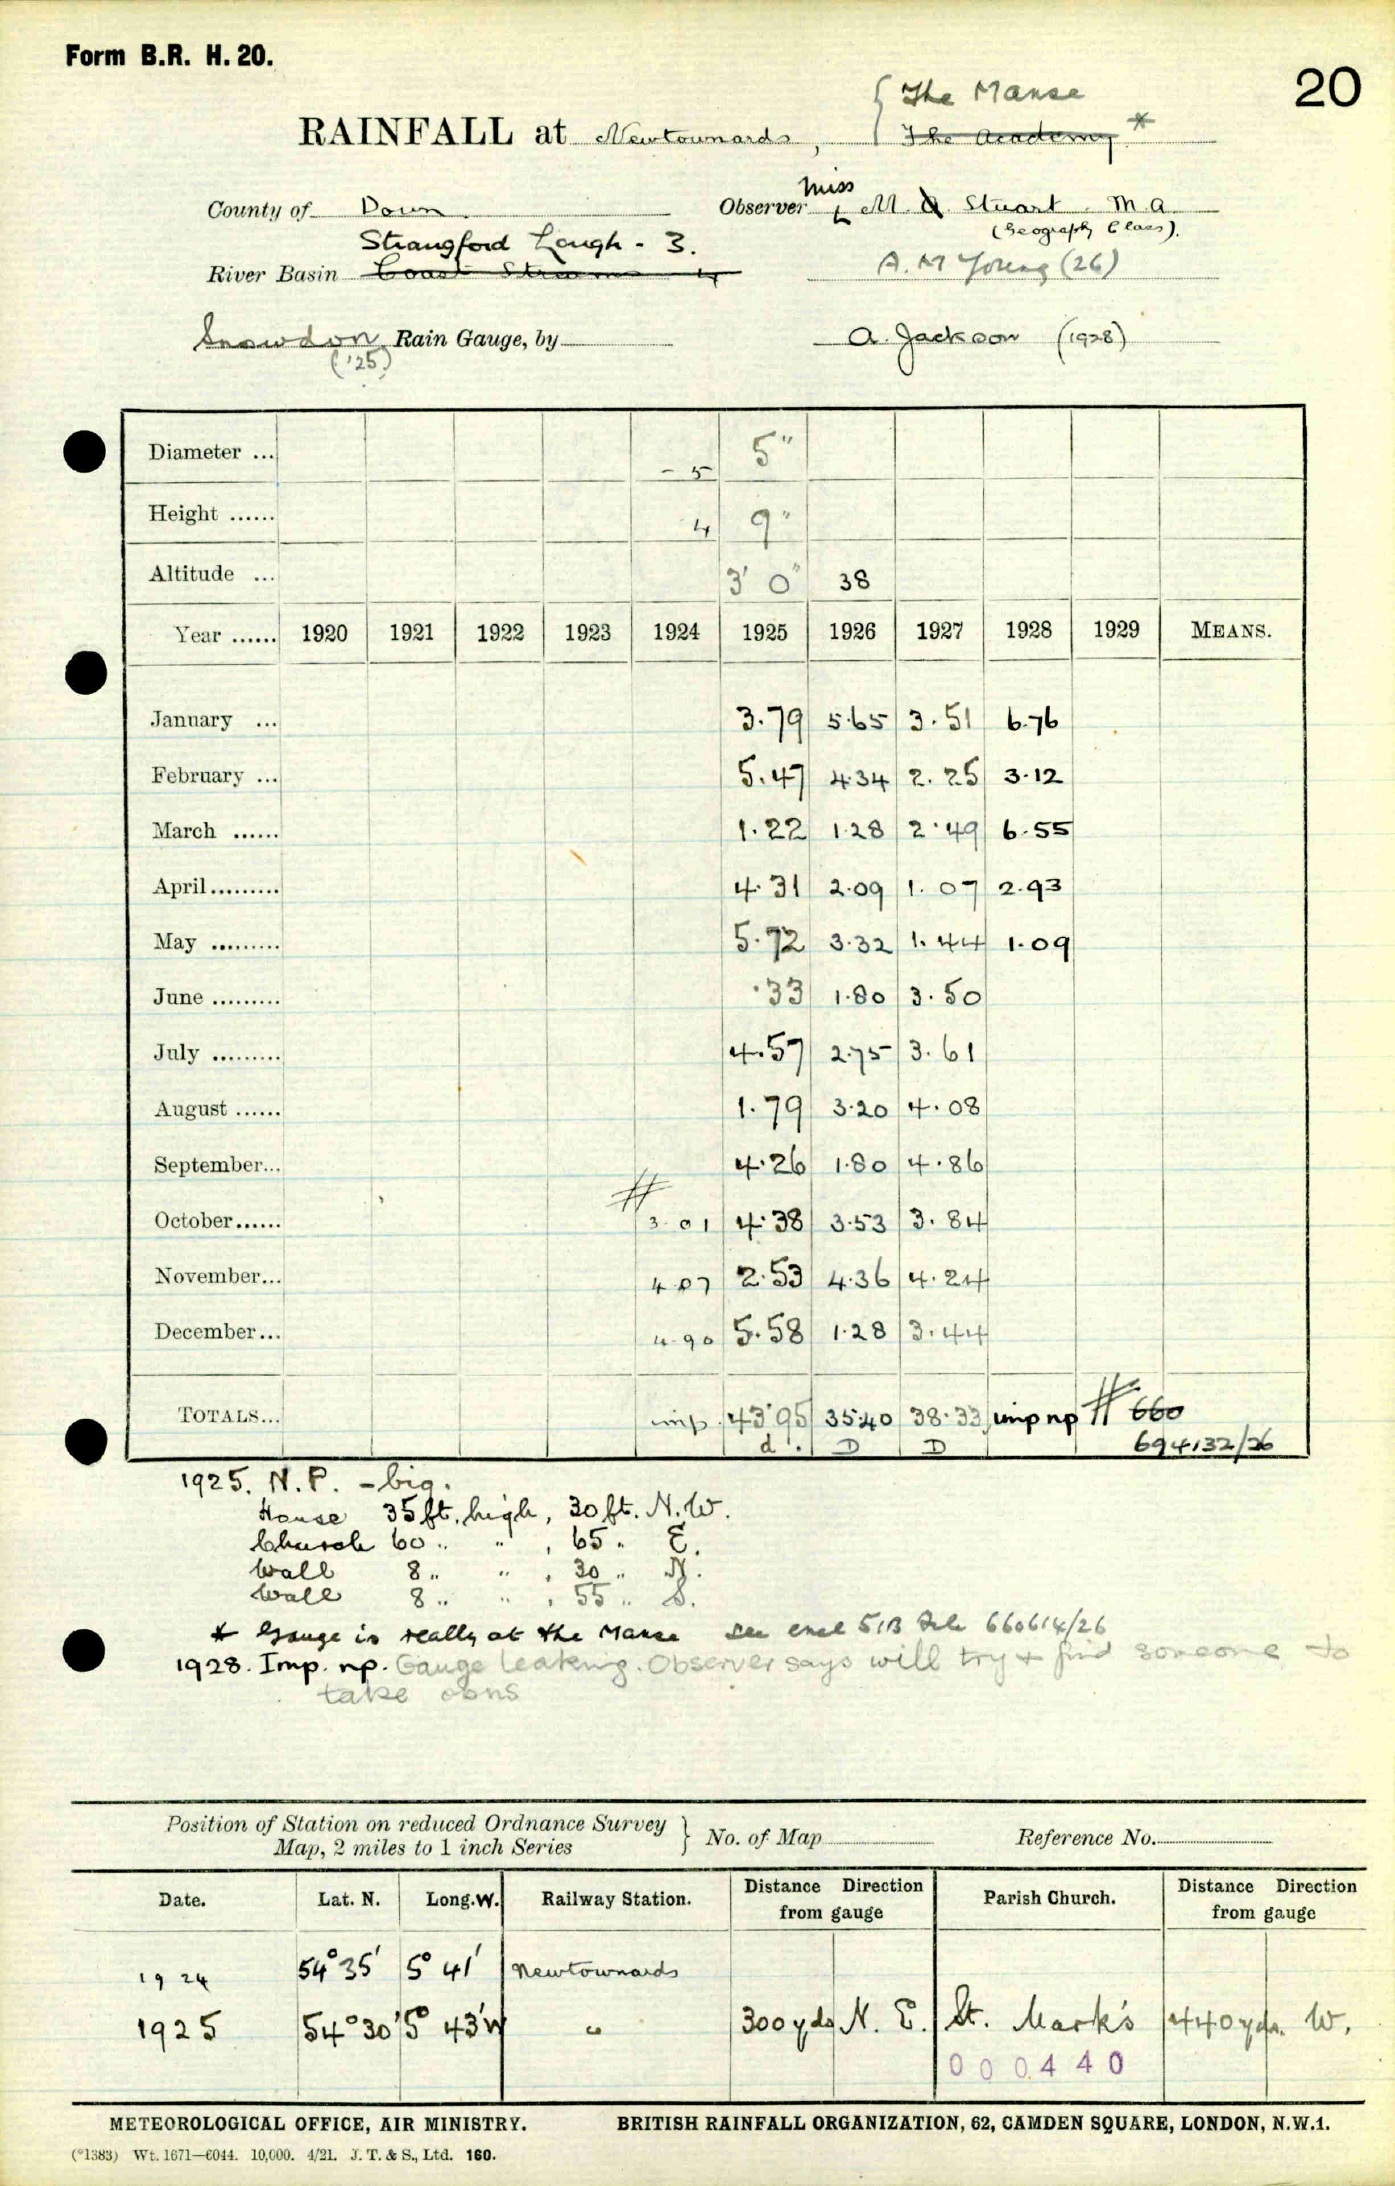 Form B.R. H. 20.
20
The Manse
RAINFALL at Newtownards, The Academy *
Miss
County of Down Observer M. Stuart M.A.
(Geography Class).
Strangford Lough - 3.
River Basin Coast Streams 4 A. M Young (26)
Snowdon Rain Gauge, by A. Jackson (1928)
('25)
Diameter ... - 5 5"
Height ...... 4 9"
Altitude ... 3' 0" 38
Year ...... 1920 1921 1922 1923 1924 1925 1926 1927 1928 1929 MEANS.
January ... 3.79 5.65 3.51 6.76
February ... 5.47 4.34 2.25 3.12
March ...... 1.22 1.28 2.49 6.55
April ......... 4.31 2.09 1.07 2.93
May ......... 5.72 3.32 1.44 1.09
June ......... .33 1.80 3.50
July ......... 4.57 2.75 3.61
August ...... 1.79 3.20 4.08
September... 4.26 1.80 4.86
#
October...... 3.01 4.38 3.53 3.84
November... 4.07 2.53 4.36 4.24
December... 4.90 5.58 1.28 3.44
TOTALS... imp. 43.95 35.40 38.33 imp np # 660
d. D D 694132/26
1925. N.P. - big.
House 35 ft. high, 30 ft. N.W.
Church 60 " " , 65 " E.
Wall 8 " " , 30 " N.
Wall 8 " " , 55 " S.
* Gauge is really at the Manse see encl 51B File 660614/26
1928. Imp. np. Gauge leaking. Observer says will try & find someone to
take obns
Position of Station on reduced Ordnance Survey
Map, 2 miles to 1 inch Series } No. of Map Reference No.
Date. Lat. N. Long. W. Railway Station. Distance Direction from gauge Parish Church. Distance Direction from gauge
1924 54° 35' 5° 41' Newtownards
1925 54° 30' 5° 43' W " 300 yds N. E. St. Mark's 440 yds. W.
000440
METEOROLOGICAL OFFICE, AIR MINISTRY. BRITISH RAINFALL ORGANIZATION, 62, CAMDEN SQUARE, LONDON, N.W.1.
(*1383) Wt. 1671—6044. 10,000. 4/21. J. T. & S., Ltd. 160.